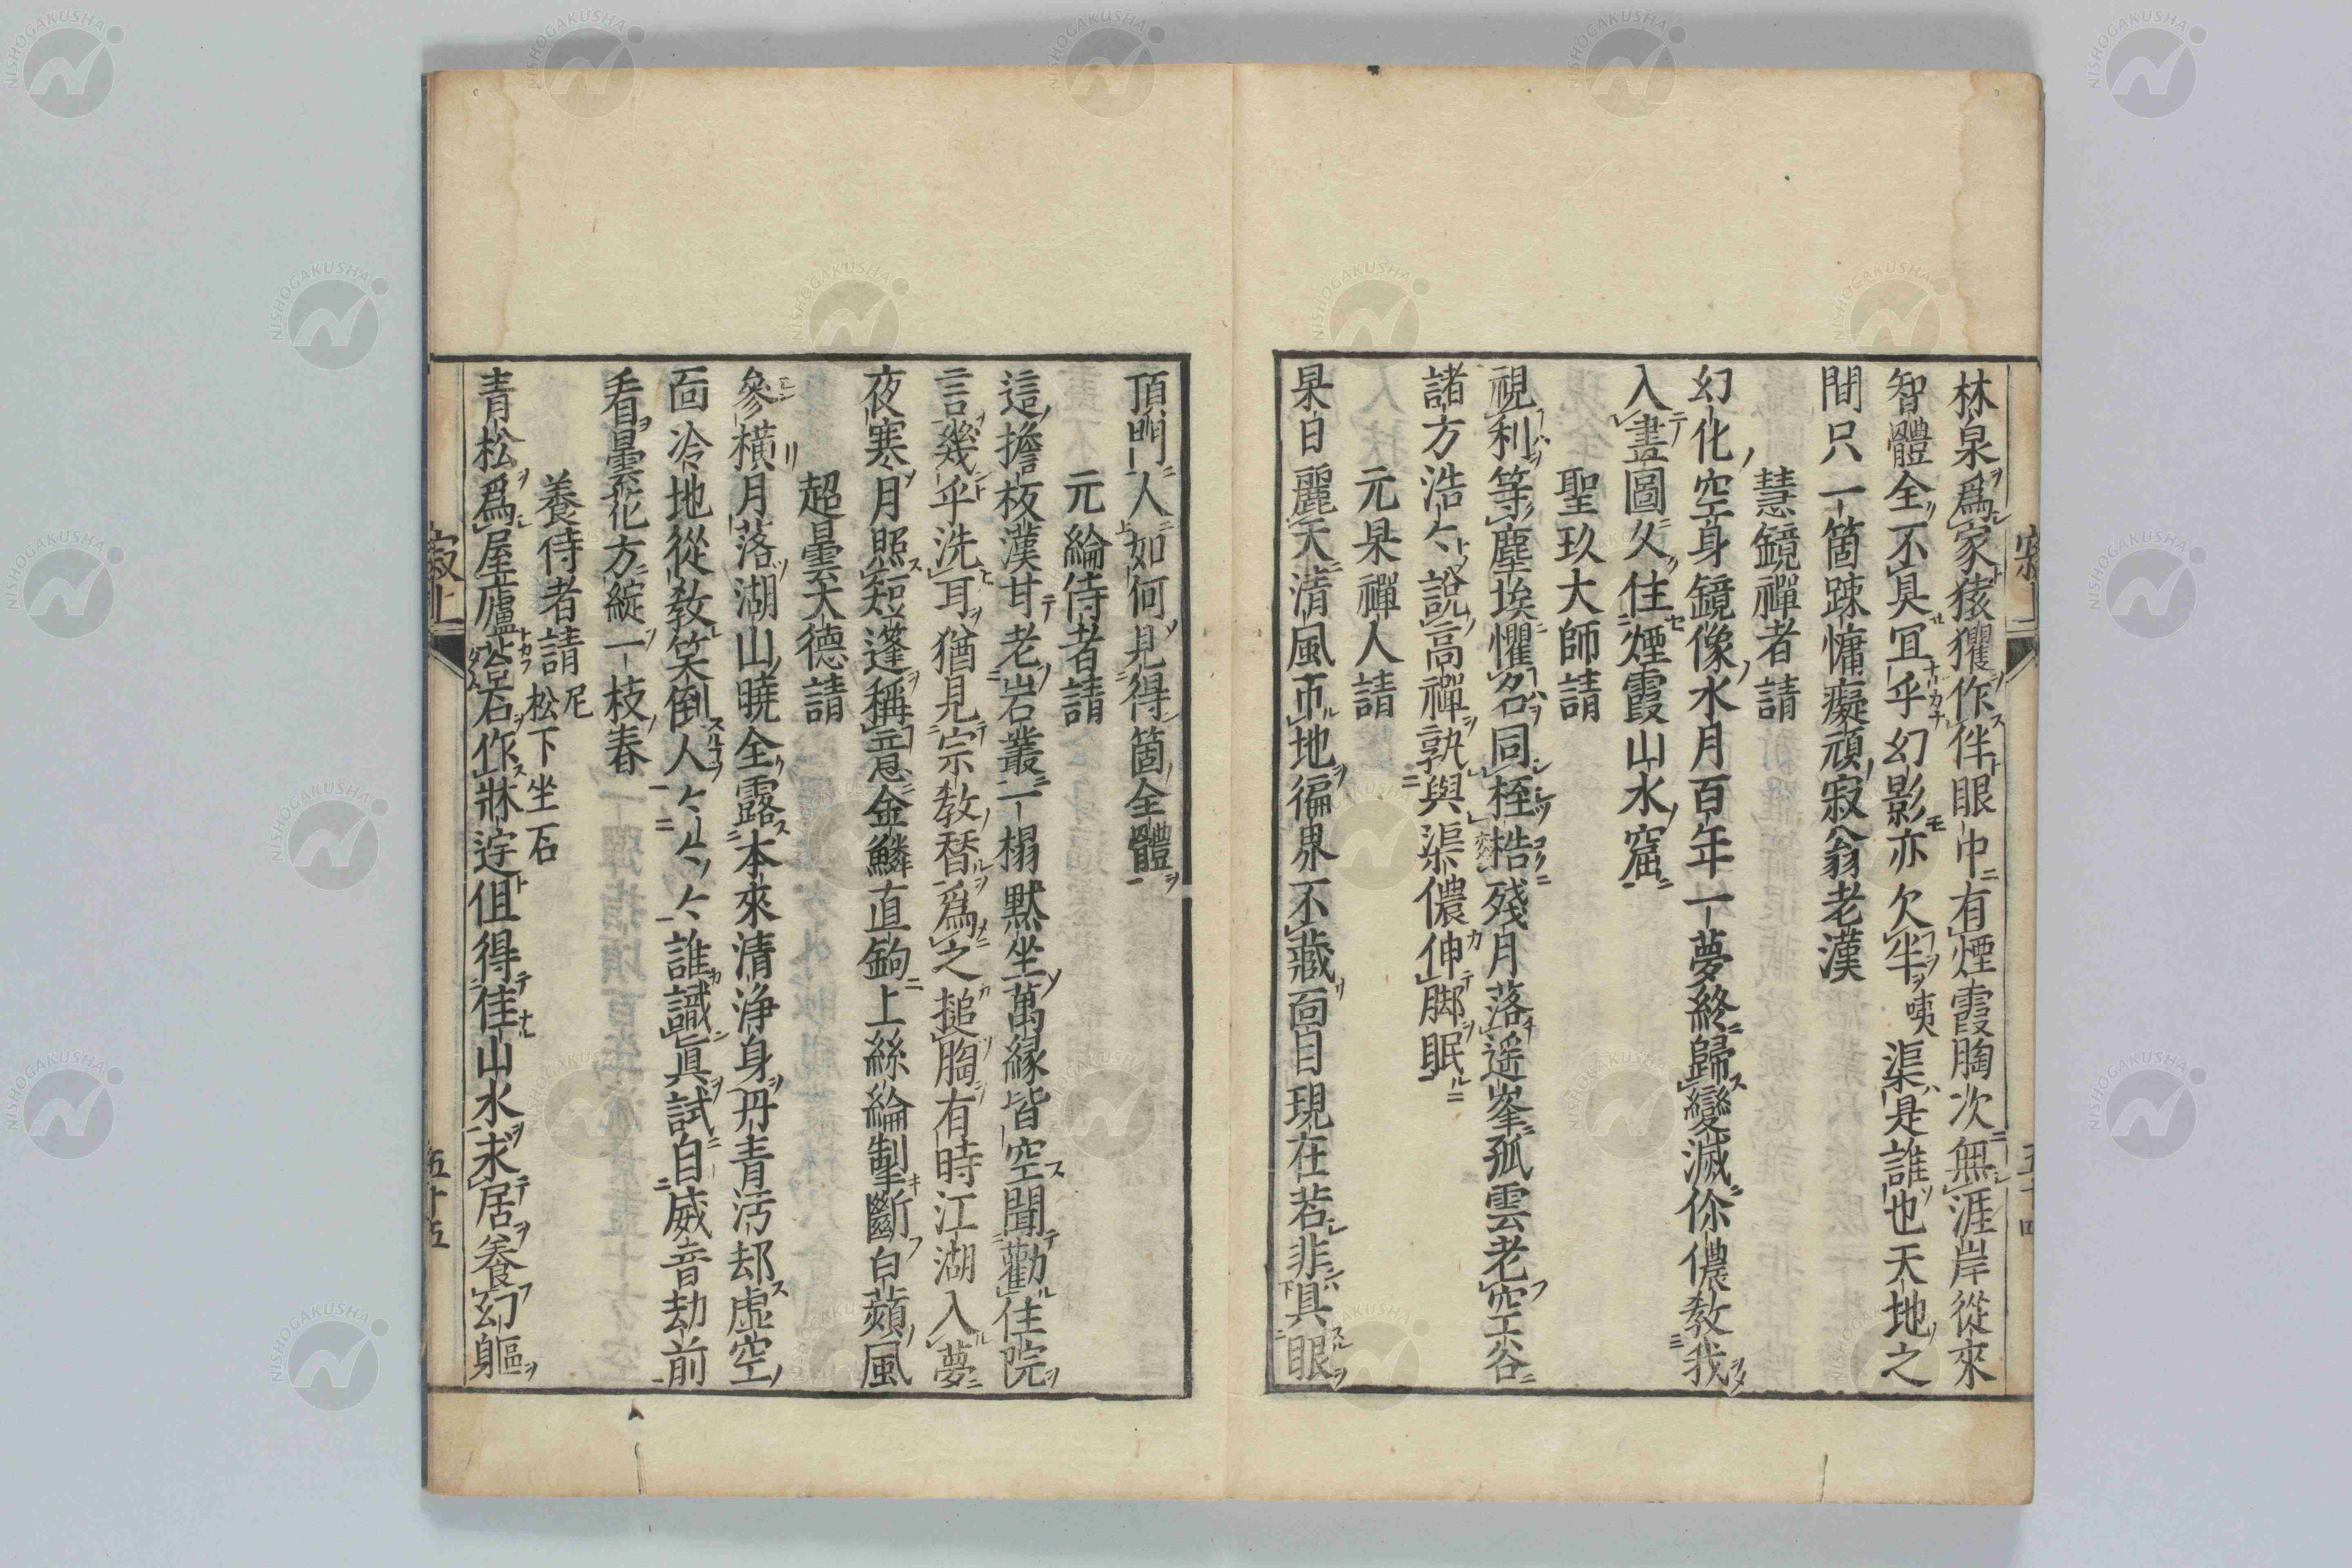 林泉爲家猿玃作伴眼中有煙霞胸次無涯岸從來
智體全不具冝乎幻影亦欠半咦渠是誰也天地之
間只一箇踈慵癡頑寂翁老漢
慧鏡禪者請
幻化空身鏡像水月百年一夢終歸變滅你儂教我
入畫圖久住煙霞山水窟
聖玖大師請
視利等塵埃懼名同桎梏殘月落遥峯孤雲老空谷
諸方浩〻說高禪孰與渠儂伸脚眠
元杲禪人請
杲日麗天清風帀地徧界不藏面目現在若非具眼
頂門人如何見得箇全體
元綸侍者請
這擔板漢甘老岩叢一榻默坐萬緣皆空聞勸住院
言幾乎洗耳猶見宗教替爲之搥胸有時江湖入夢
夜寒月照短蓬稱意金鱗直鉤上絲綸掣斷白蘋風
超曇大德請
參橫月落湖山曉全露本來清淨身丹青汚却虛空
面冷地從教笑倒人〻〻〻誰識眞試自威音劫前
看曇花方綻一枝春
養侍者請 尼松下坐石
青松爲屋廬蒼石作牀 伹得佳山水求居養幻軀
寂上
五十五
NISHOGAKUSHA